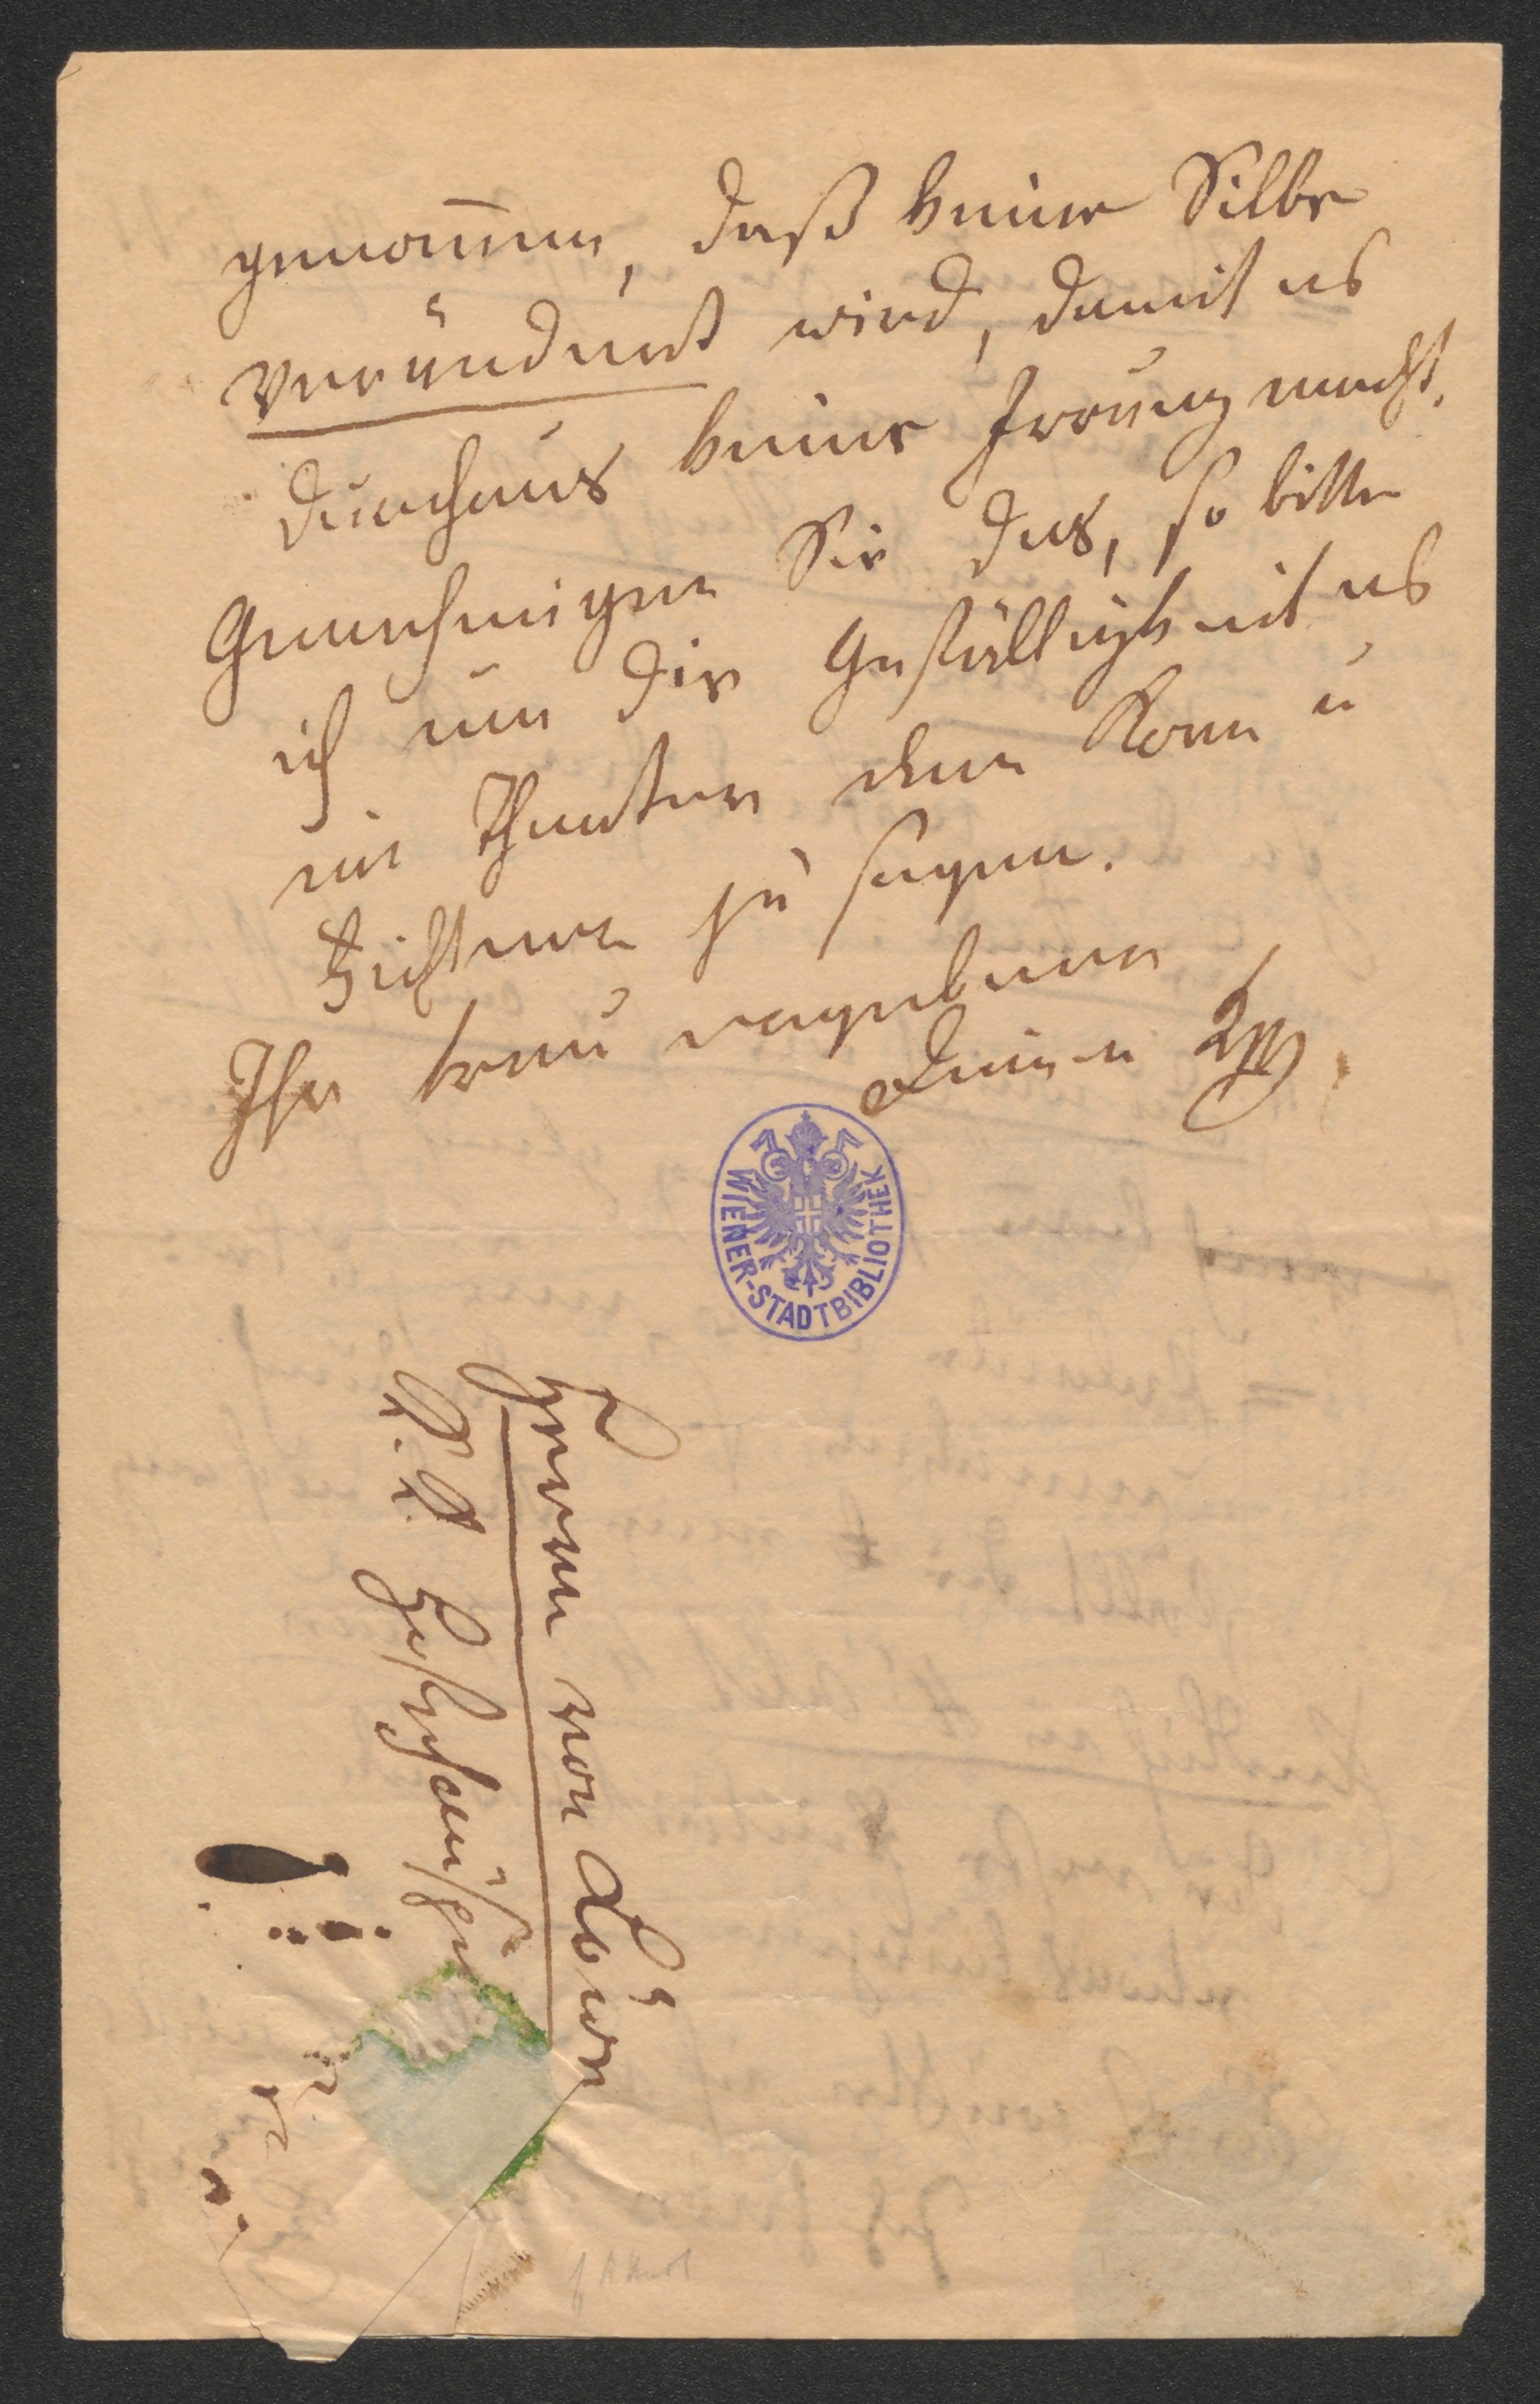 genom̅en, daß keine Silbe
verändert wird, damit es
durchaus keine Irrung macht.
Genehmigen Sie das, so bitte
ich um die Gefälligkeit es
im Theater dem Korn u
Fichtner zu sagen.
Ihr treu ergebener
WIENER-STADTBIBLIOTHEK
Herrn von Löwe
K. K. Hofschauspie